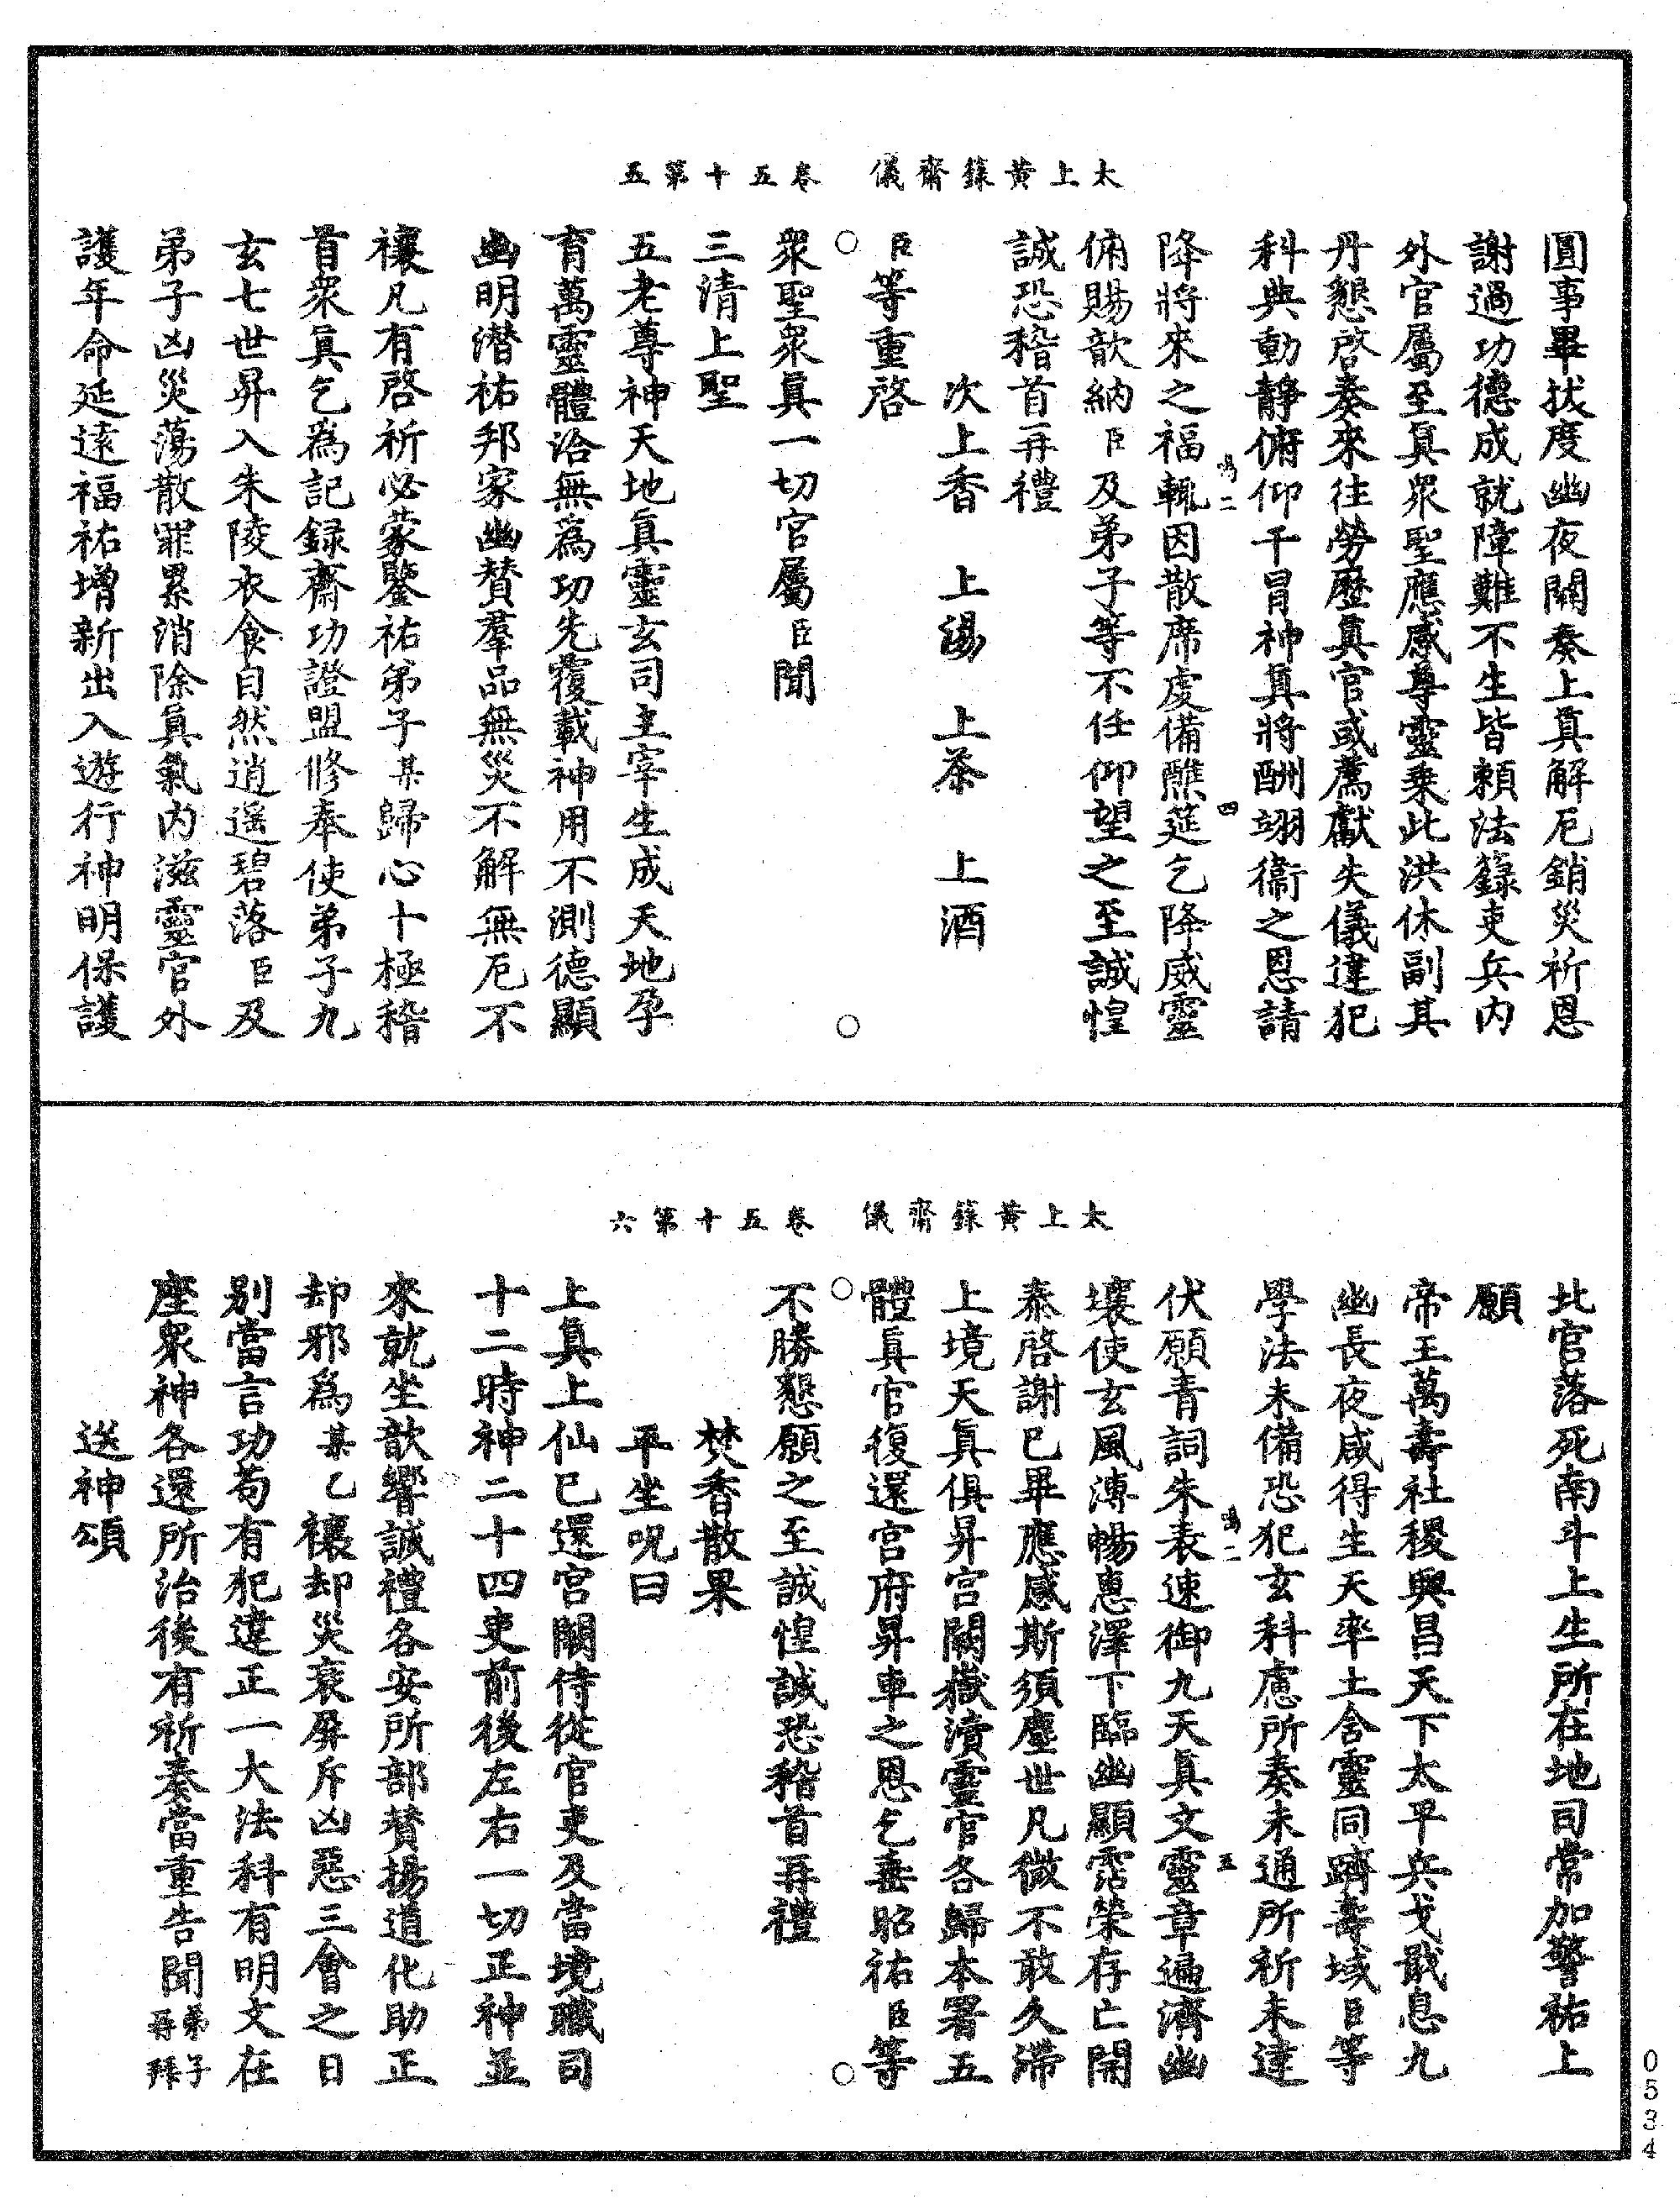 太上黃籙齋儀　卷五十第五
圓事畢拔度幽夜關奏上真解厄銷災祈恩
謝過功德成就障難不生皆賴法籙吏兵內
外官屬至真眾聖應感尊靈乗此洪休副其
丹懇啓奏來往勞歷真官或薦獻失儀違犯
科典動靜俯仰干冒神真將酬翊衞之恩請
鳴二　四
降將來之福輒因散席虔備醮筵乞降威靈
俯賜歆納臣及弟子等不任仰望之至誠惶
誠恐稽首再禮
次上香　上湯　上茶　上酒
臣等重啓
○　○
眾聖眾真一切官屬臣聞
三清上聖
五老尊神天地真靈玄司主宰生成天地孕
育萬靈體洽無為功先覆載神用不測德顯
幽明潛祐邦家幽贊羣品無災不解無厄不
禳凡有啓祈必蒙鑒祐弟子某歸心十極稽
首眾真乞為記錄齋功證盟修奉使弟子九
玄七世昇入朱陵衣食自然逍遥碧落臣及
弟子凶災蕩散罪累消除真氣內滋靈官外
護年命延遠福祐增新出入遊行神明保護
太上黃籙齋儀　卷五十第六
北官落死南斗上生所在地司常加警祐上
願
帝王萬壽社稷興昌天下太平兵戈戢息九
幽長夜咸得生天率土含靈同躋壽域臣等
學法未備恐犯玄科慮所奏未通所祈未達
鳴二　五
伏願青詞朱表速御九天真文靈章遍濟幽
壤使玄風溥暢惠澤下臨幽顯霑榮存亡開
泰啓謝已畢應感斯須塵世凡微不敢久滯
上境天真俱昇宫闕嶽瀆靈官各歸本署五
體真官復還宫府昇車之恩乞垂昭祐臣等
○　○
不勝懇願之至誠惶誠恐稽首再禮
焚香散果
平坐呪曰
上真上仙已還宫闕侍從官吏及當境職司
十二時神二十四吏前後左右一切正神並
來就坐歆饗誠禮各安所部贊揚道化助正
却邪為某乙禳却災衰屏斥凶惡三會之日
别當言功苟有犯違正一大法科有明文在
座眾神各還所治後有祈奏當重告聞弟子再拜
送神頌
0534